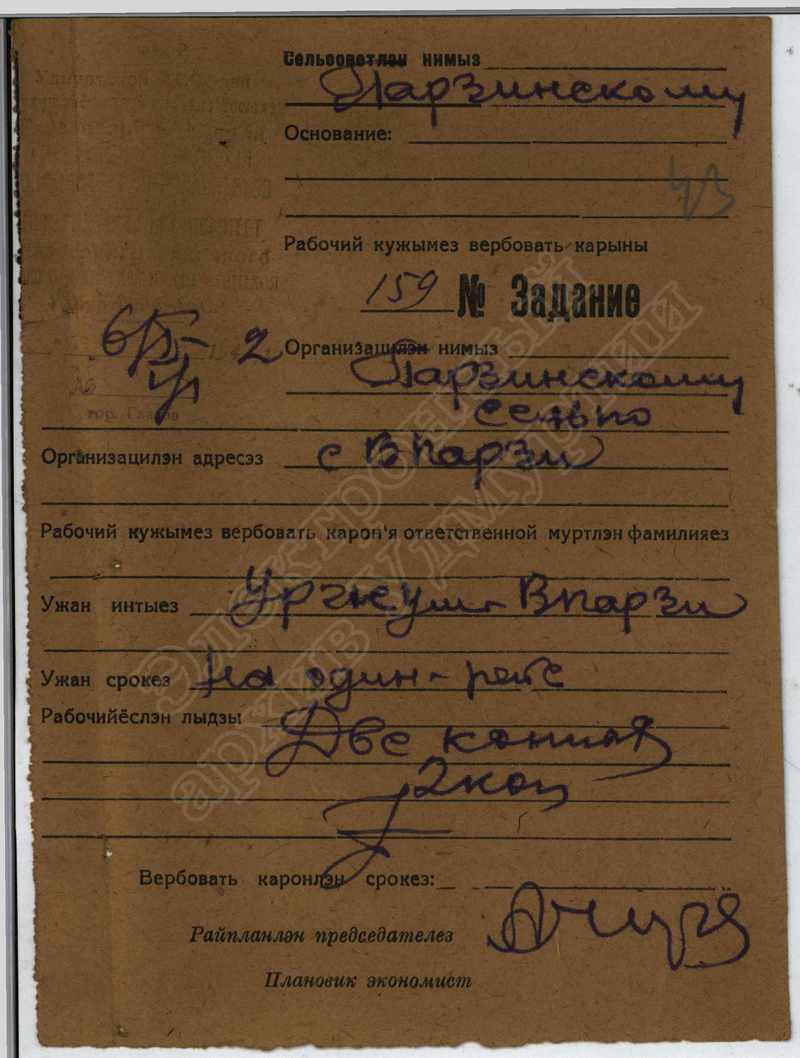 Сельсоветлэн нимыз
Парзинскому
Основание:
43
Рабочий кужымез вербовать карыны
159 № Задание
Организацилэн нимыз
Парзинскому
сельпо
гор. Глазов
Организацилэн адресэз с Впарзи
Рабочий кужымез вербовать карон'я ответственной муртлэн фамилияез
Ужан интыез Впарзи
Ужан срокез На один - рейс
Рабочийёслэн лыдзы
Две конная
2 кон
Вербовать каронлэн срокез:
Райпланлэн председателез
Плановик экономист
Электронный
архив Удмуртии